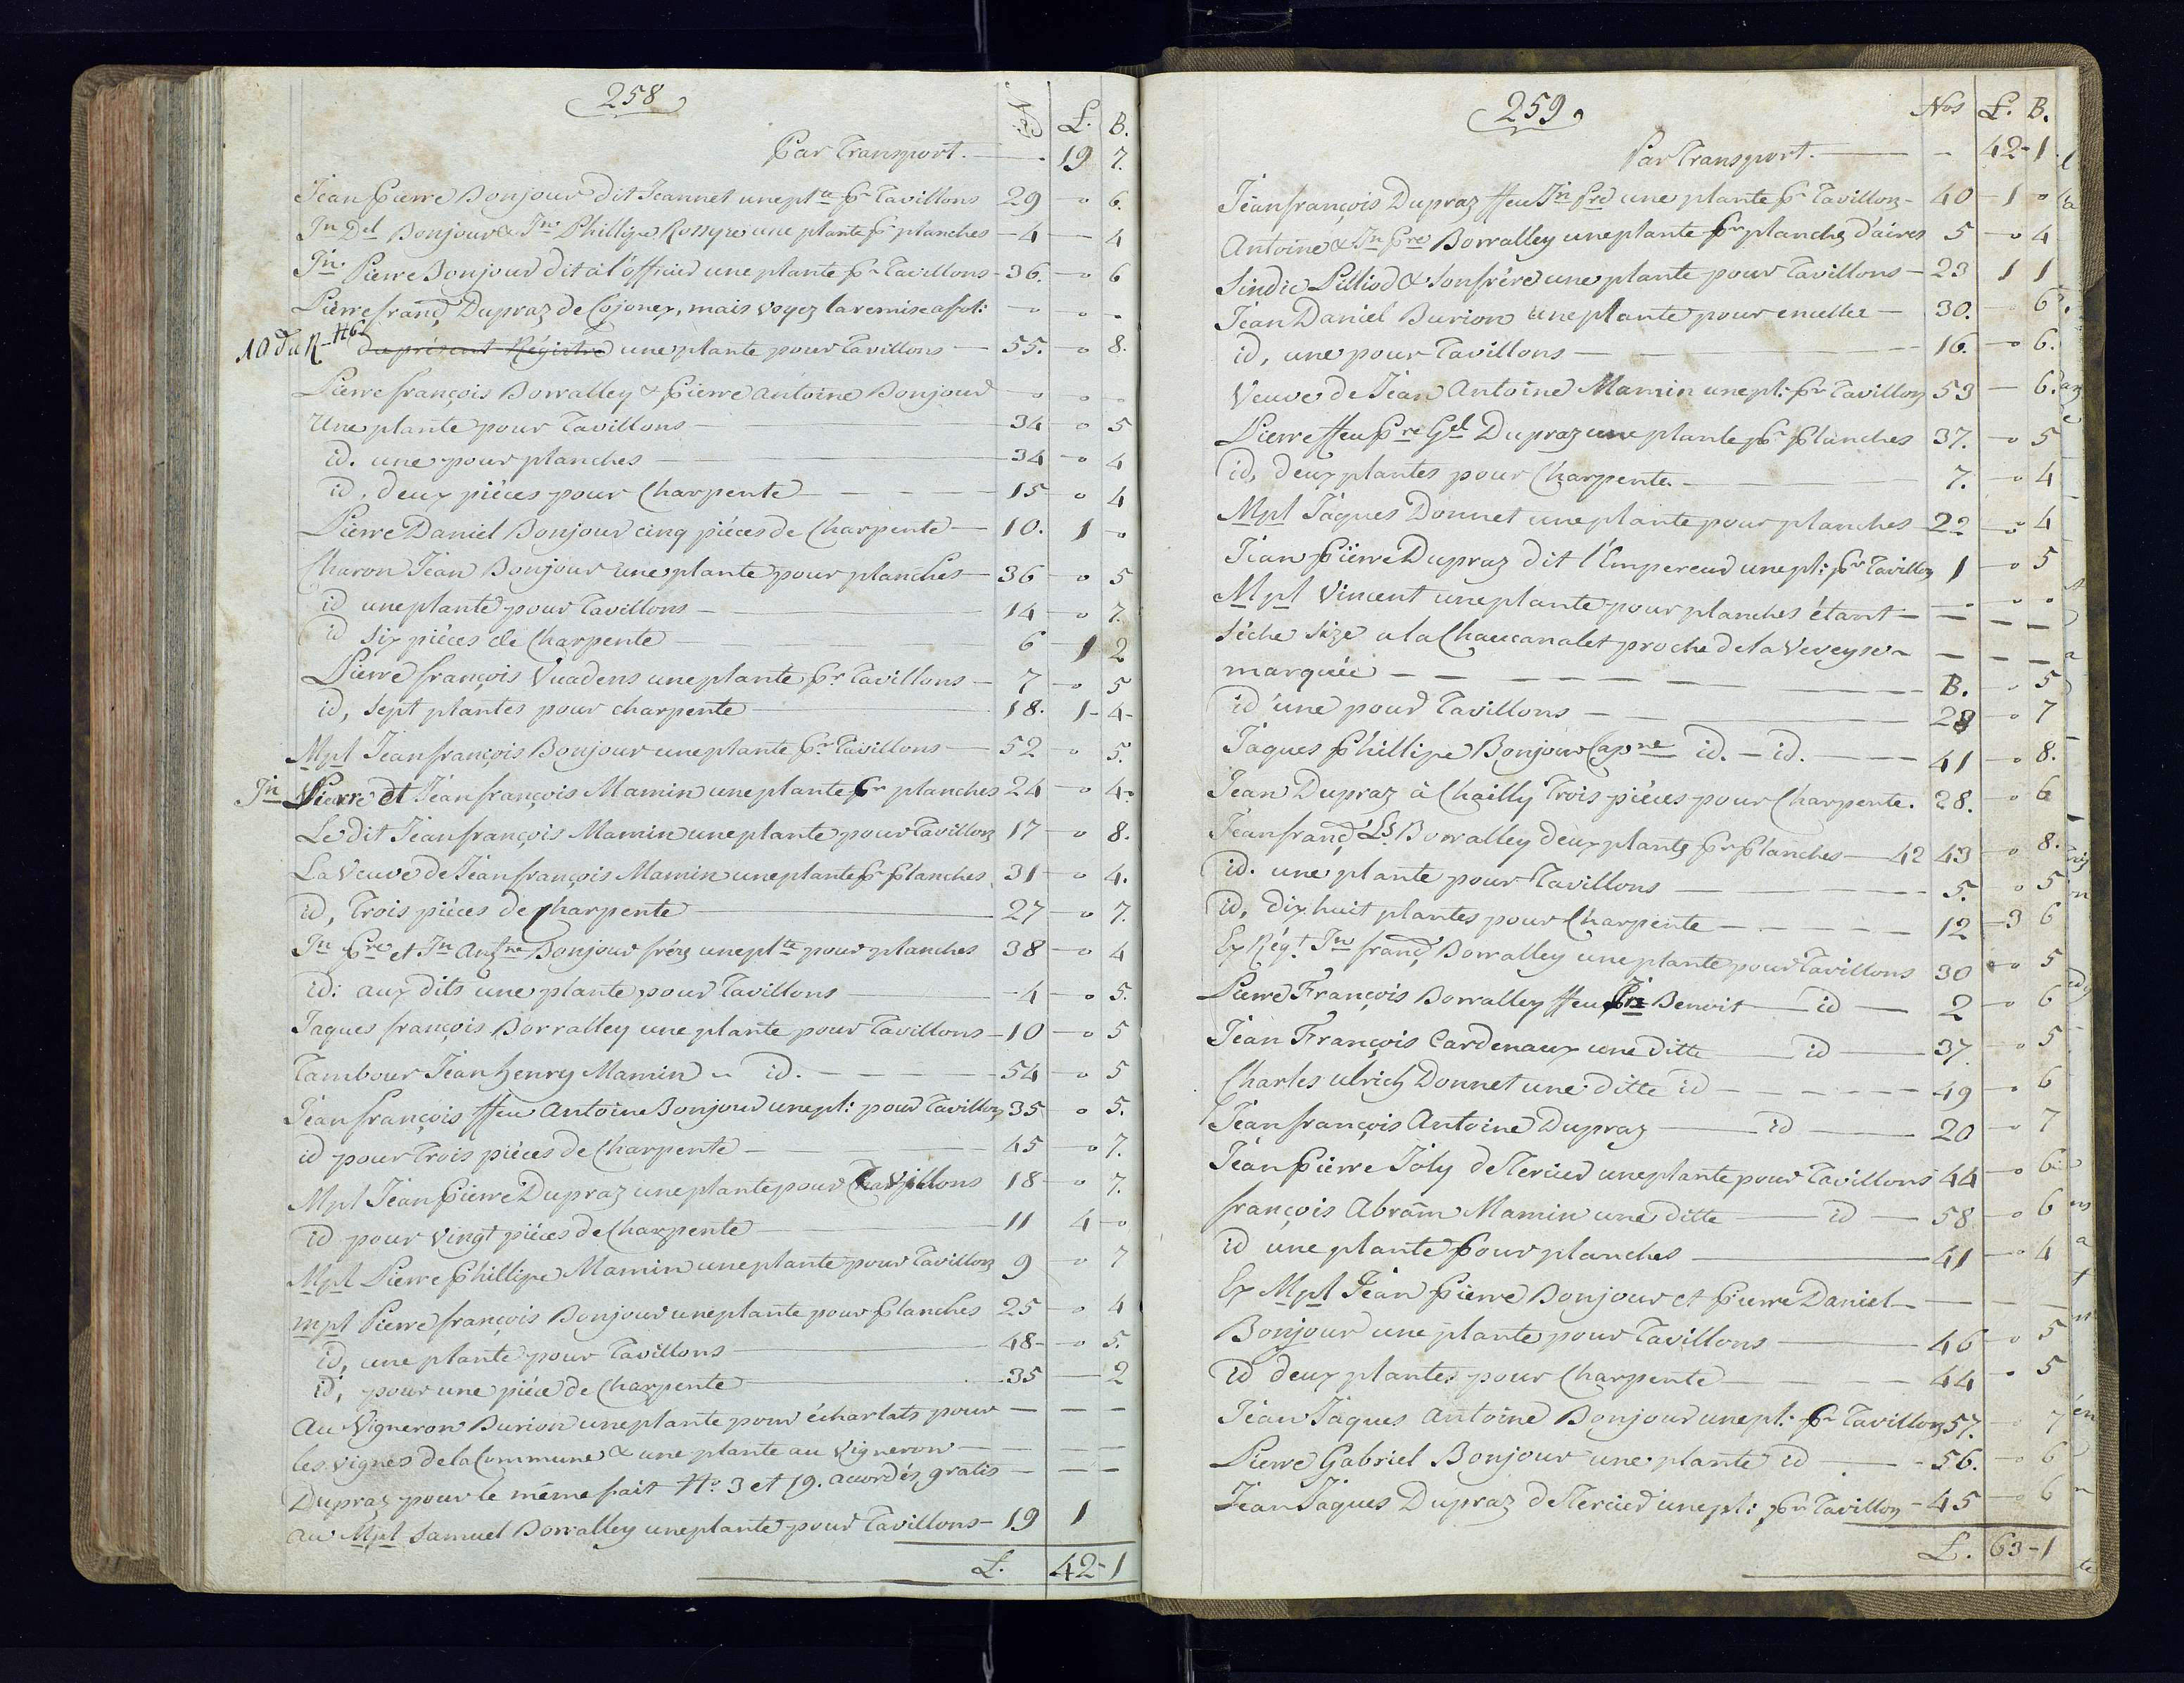 258
Nos L. B.
Par Transport. 19 7.
Jean Pierre Bonjour dit Jeannet une plte pr Tavillons 29 0 6.
Jn Del Bonjour & Jn Phillipe Rossyre une plante pr planches 4 4
Jn Pierre Bonjour dit à l'officier une plante pr Tavillons 36. 0 6
Pierre franç Dupraz de Cojonex, mais voyez la remise a fol: 0 0
10 du R. H6 du présent Régistre une plante pour Tavillons 55. 0 8.
Pierre françois Borralley & Pierre Antoine Bonjour 0 0
Une plante pour Tavillons 34 0 5
id. une pour planches 34 0 4
id. deux piéces pour Charpente 15 0 4
Pierre Daniel Bonjour cinq piéces de Charpente 10. 1 0
Charon Jean Bonjour une plante pour planches 36 0 5
id une plante pour Tavillons 14 0 7.
id six piéces de Charpente 6 1 2
Pierre françois Vuadens une plante pr Tavillons 7 0 5
id, sept plantes pour charpente 18. 1 4
Mpl Jean françois Bonjour une plante pr Tavillons 52 0 5.
Jn Pierre et Jean françois Mamin une plante pr planches 24 0 4.
Le dit Jean françois Mamin une plante pour Tavillons 17 0 8.
La Veuve de Jean françois Mamin une plante pr planches 31 0 4.
id, Trois piéces de Charpente 27 0 7.
Jn Pre et Jn Antne Bonjour fréres une plte pour planches 38 0 4
id: aux dits une plante pour Tavillons 4 0 5.
Jaques françois Borralley une plante pour Tavillons 10 0 5
Tambour Jean henry Mamin id. 54 0 5
Jean françois ffeu Antoine Bonjour une pl: pour Tavillons 35 0 5.
id pour Trois piéces de Charpente 45 0 7.
Mpl Jean Pierre Dupraz une plante pour Tavillons 18 0 7.
id pour vingt piéces de Charpente 11 4 0
Mpl Pierre Phillipe Mamin une plante pour Tavillons 9 0 7
mpl Pierre françois Bonjour une plante pour planches 25 0 4
id, une plante pour Tavillons 48 0 5.
id, pour une piéce de Charpente 35 2
Au Vigneron Burion une plante pour écharlats pour
les vignes de la Commune & une plante au Vigneron
Dupraz pour le même fait No. 3 et 19. accordés gratis
au Mpl Samuel Borralley une plante pour Tavillons 19 1
L. 42 1
259
Nos L. B.
Par Transport. 42 1.
Jean françois Dupraz ffeu Jn Pre une plante pr Tavillons 40 1 0
Antoine & Jn Pre Borralley une plante pr planches d'aires 5 0 4
Sindic Pilliod & son frére une plante pour Tavillons 23 1 1
Jean Daniel Burion une plante pour encelles 30. 0 6
id, une pour Tavillons 16. 0 6.
Veuve de Jean Antoine Mamin une pl: pr Tavillons 53 6.
Pierre ffeu Pre Gel Dupraz une plante pr planches 37. 0 5
id, deux plantes pour Charpente 7. 0 4
Mpl Jaques Donnet une plante pour planches 22 0 4
Jean Pierre Dupraz dit l'Empereur une pl: pr Tavillons 1 0 5
Mpl Vincent une plante pour planches étant 0 0
séche size a la Chaucanalet proche de la Veveyse
marquée B. 0 5
id une pour Tavillons 28 0 7
Jaques Phillipe Bonjour Capne id. id. 41 0 8.
Jean Dupraz à Chailly Trois piéces pour Charpente. 28. 0 6
Jean franç Ls Borralley deux plants pr planches 42 43 0 8.
id. une plante pour Tavillons 5. 0 5
id, dix huit plantes pour Charpente 12 3 6
Ex Régt Jn franç Borralley une plante pour Tavillons 30 0 5
Pierre François Borralley ffeu Pre Benoit id 2 0 6
Jean François Cardenaux une ditte id 37 0 5
Charles ulrich Donnet une ditte id 49 0 6
Jean françois Antoine Dupraz id 20 0 7
Jean Pierre Joly de Tercier une plante pour Tavillons 44 0 6
françois Abram Mamin une ditte id 58 0 6
id une plante pour planches 41 0 4
Ex Mpl Jean Pierre Bonjour et Pierre Daniel
Bonjour une plante pour Tavillons 46 0 5
id deux plantes pour Charpente 44 0 5
Jean Jaques Antoine Bonjour une pl: pr Tavillons 57. 0 7
Pierre Gabriel Bonjour une plante id 56. 0 6
Jean Jaques Dupraz de Tercier une pl: pr Tavillon 45 0 6
L. 63 1